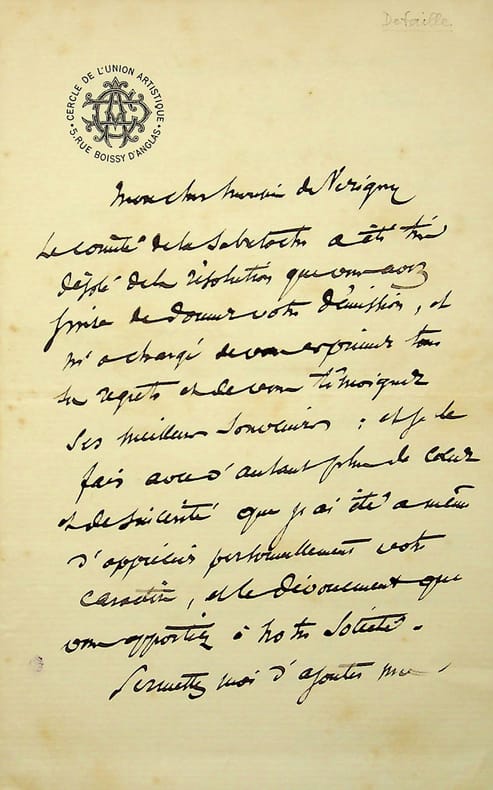 Detaille
CERCLE DE L'UNION ARTISTIQUE
5, RUE BOISSY D'ANGLAS
Mon cher de Vérigny
Le comité de la Sabretache a été très
désolé de la résolution que vous avez
prise de donner votre démission, et
m'a chargé de vous exprimer tous
ses regrets et de vous témoigner
ses meilleurs souvenirs ; et je le
fais avec d'autant plus de cœur
et de sincérité que j'ai été à même
d'apprécier personnellement votre
caractère, et le dévouement que
vous apportiez à notre Société.
Permettez moi d'ajouter